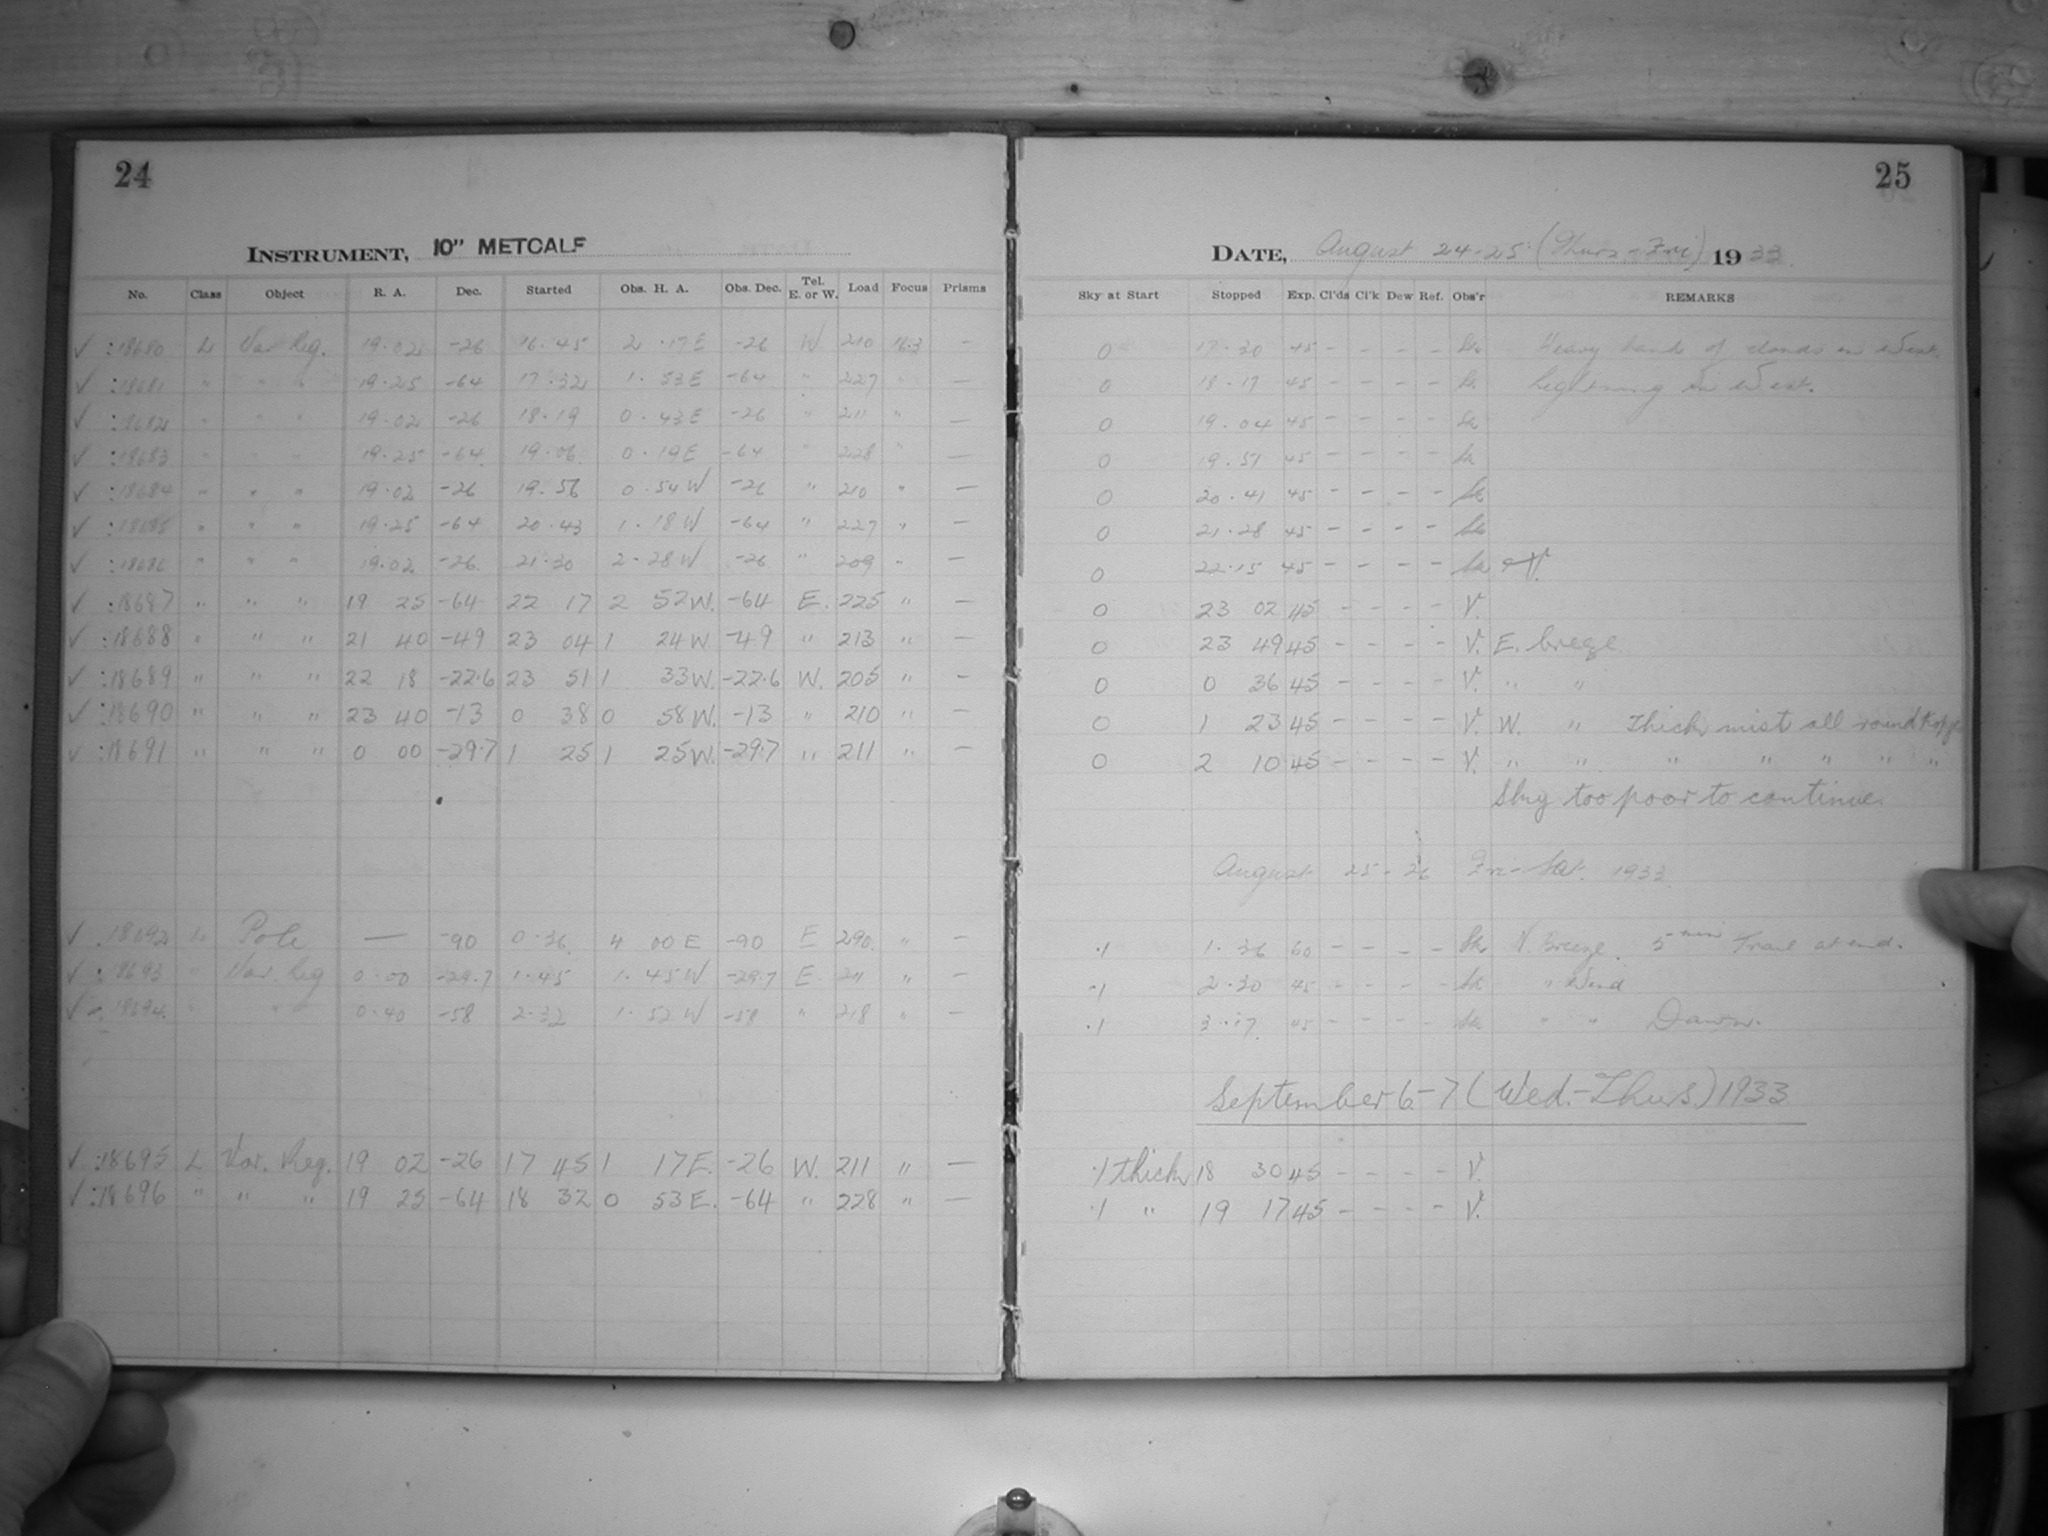 24
INSTRUMENT, 10" METCALF
No. Class Object R. A. Dec. Started Obs. H. A. Obs. Dec. Tel. E. or W. Load Focus Prisms
✓ :18680 L Var Reg. 19.02 -26 16.45 2.17E -26 W 210 16.3 -
✓ :18681 " " " 19.25 -64 17.32 1.53E -64 " 227 " -
✓ :18682 " " " 19.02 -26 18.19 0.43E -26 " 211 " -
✓ :18683 " " " 19.25 -64 19.06 0.19E -64 " 228 " -
✓ :18684 " " " 19.02 -26 19.56 0.54W -26 " 210 " -
✓ :18685 " " " 19.25 -64 20.43 1.18W -64 " 227 " -
✓ :18686 " " " 19.02 -26 21.30 2.28W -26 " 209 " -
✓ :18687 " " " 19 25 -64 22 17 2 52W. -64 E. 225 " -
✓ :18688 " " " 21 40 -49 23 04 1 24W -49 " 213 " -
✓ :18689 " " " 22 18 -22.6 23 51 1 33W. -22.6 W. 205 " -
✓ :18690 " " " 23 40 -13 0 38 0 58W. -13 " 210 " -
✓ :18691 " " " 0 00 -29.7 1 25 1 25W. -29.7 " 211 " -
✓ 18692 L Pole — -90 0.36 4 00E -90 E 290 " -
✓ :18693 " Var. Reg 0.00 -29.7 1.45 1.45W -29.7 E. 211 " -
✓ 18694 " " 0.40 -58 2.32 1.52W -58 " 218 " -
✓ :18695 L Var. Reg. 19 02 -26 17 45 1 17E. -26 W. 211 " -
✓ :18696 " " " 19 25 -64 18 32 0 53E. -64 " 228 " -
25
DATE, August 24-25 (Thurs-Fri) 1933
Sky at Start Stopped Exp. Cl'ds Cl'k Dew Ref. Obs'r REMARKS
0 17.30 45 - - - - Heavy band of clouds in West.
0 18.17 45 - - - - Lightning in West.
0 19.04 45 - - - -
0 19.51 45 - - - -
0 20.41 45 - - - -
0 21.28 45 - - - -
0 22.15 45 - - - -
0 23 02 45 - - - - V.
0 23 49 45 - - - - V. E. breeze
0 0 36 45 - - - - V. " "
0 1 23 45 - - - - V. W. " Thick mist all round Kopje
0 2 10 45 - - - - V. " " " " " " "
Sky too poor to continue.
August 25-26 Fri-Sat. 1933
.1 1.36 60 - - - - N. Breeze. 5 min Trail at end.
.1 2.30 45 - - - - " Wind
.1 3.17 45 - - - - " " Dawn.
September 6-7 (Wed.-Thurs) 1933
.1 thick 18 30 45 - - - - V.
.1 " 19 17 45 - - - - V.